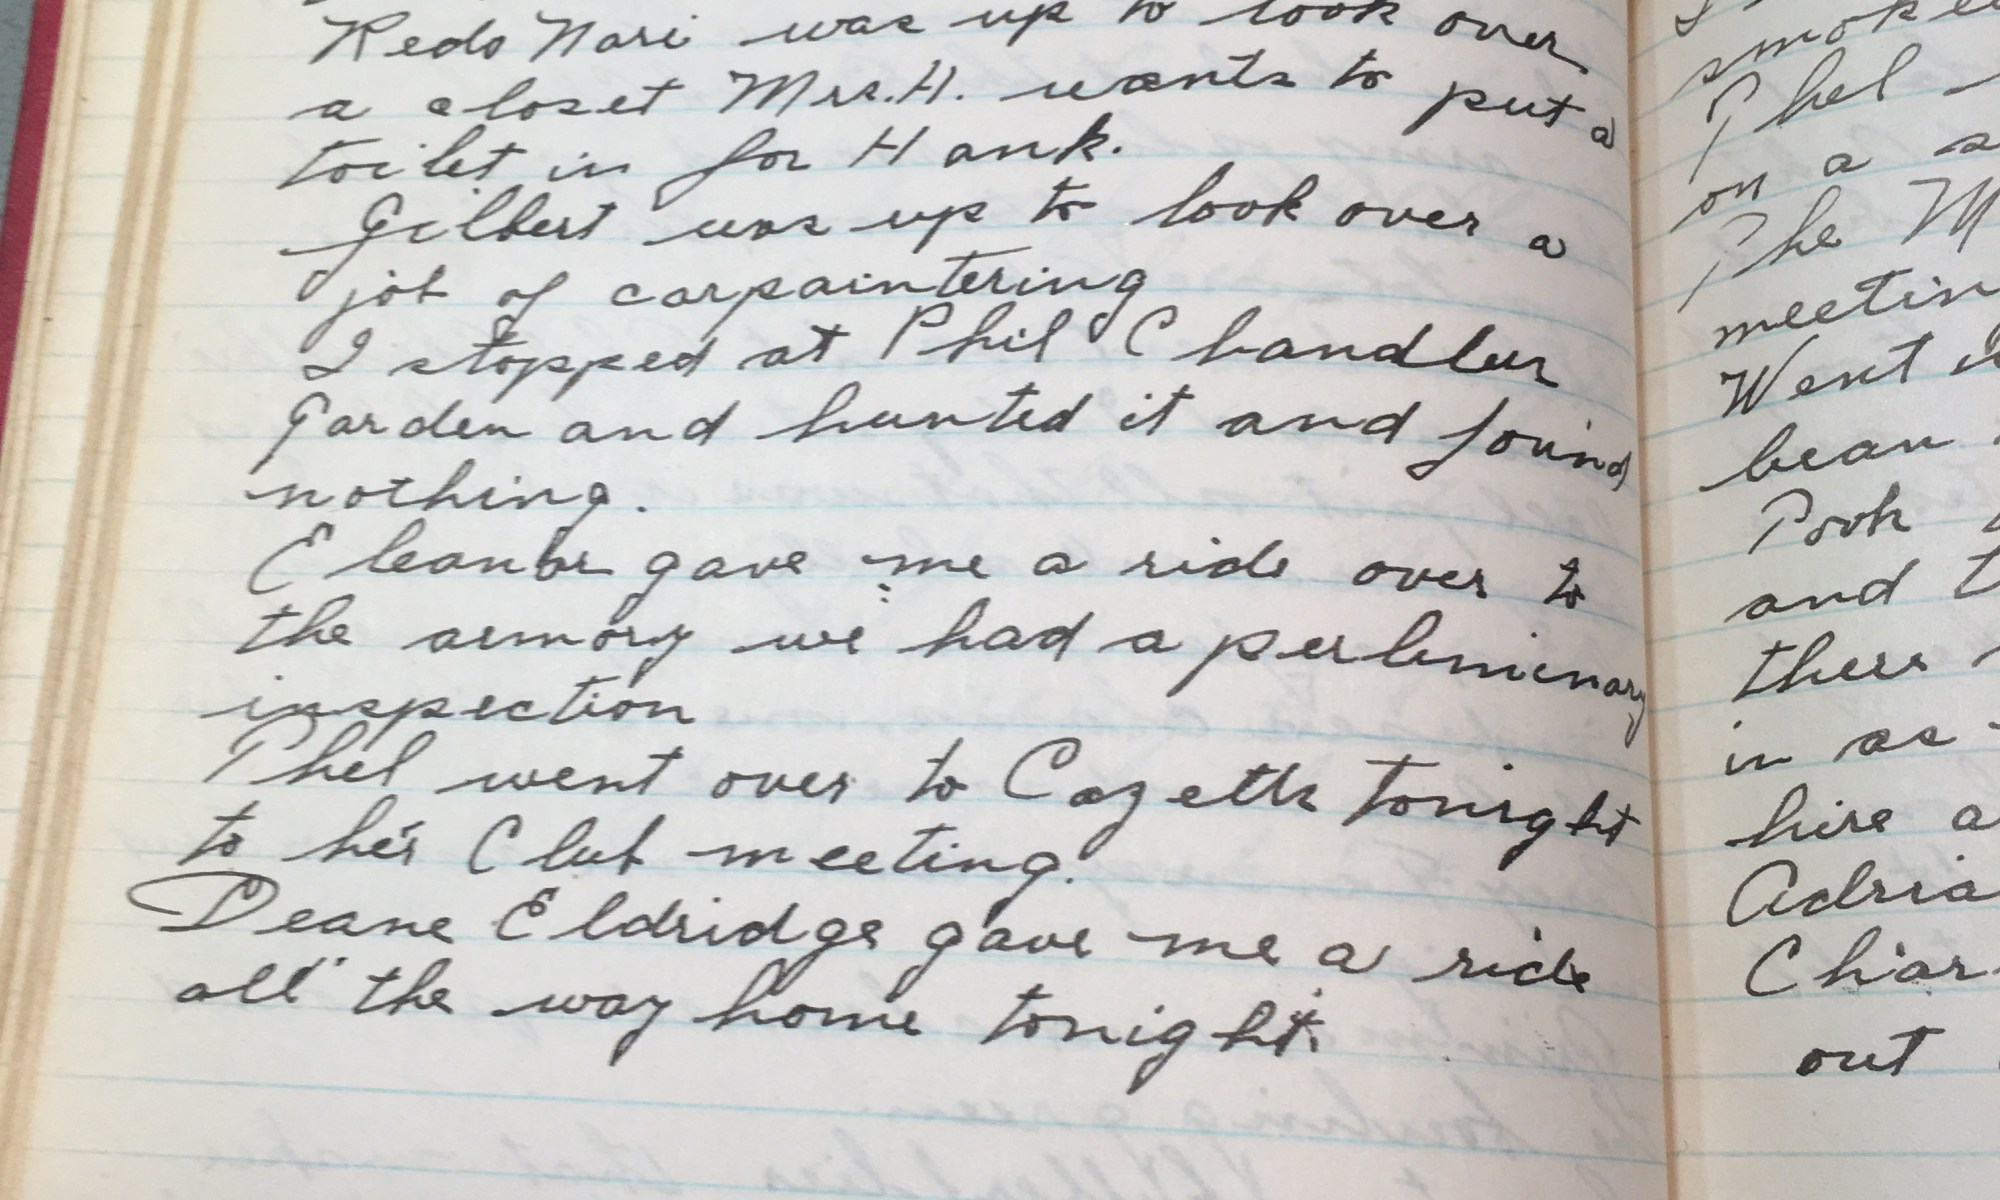 Redo Nari was up to look over
a closet Mrs. H. wants to put a
toilet in for Hank.
Gilbert was up to look over a
job of carpaintering
I stopped at Phil Chandler
Garden and hunted it and found
nothing.
Eleanor gave me a ride over to
the armory we had a perliminary
inspection
Phel went over to Cazetts tonight
to he's Club meeting.
Deane Eldridge gave me a ride
all the way home tonight.
I
smoke
Phel
on a s
The M
meetin
Went
bean
Pooh
and t
there
in as
hire a
Adria
Char
out